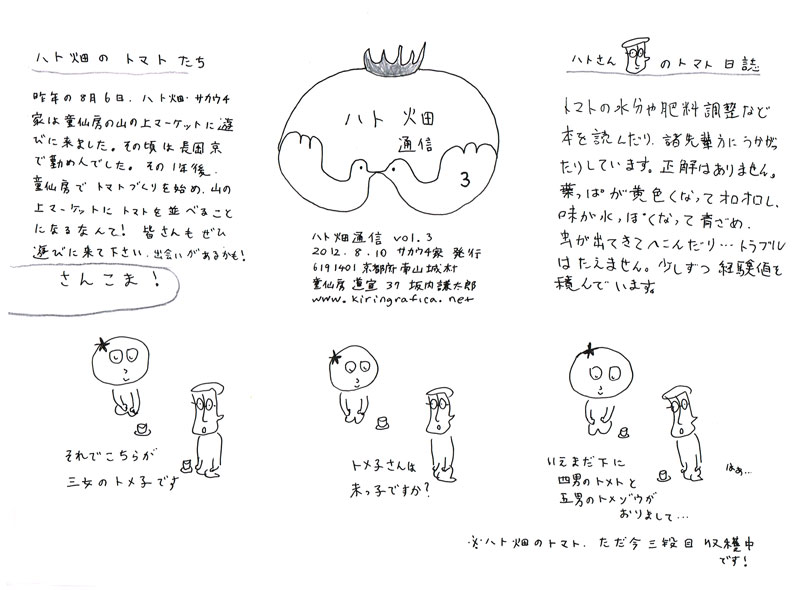 ハト畑の トマト たち
昨年の8月6日、ハト畑・サカウチ
家は童仙房の山の上マーケットに遊
びに来ました。その頃は長岡京
で勤め人でした。その1年後、
童仙房でトマトづくりを始め、山の
上マーケットにトマトを並べること
になるなんて! 皆さんもぜひ
遊びに来て下さい、出会いがあるかも!
さんこま!
ハト 畑
通信
3
ハト畑通信 vol.3
2012.8.10 サカウチ家 発行
6191401 京都府南山城村
童仙房 道宣 37 坂内謙太郎
www.kiringrafica.net
ハトさん のトマト日誌
トマトの水分や肥料調整など
本を読んだり、諸先輩方にうかがっ
たりしています。正解はありません。
葉っぱが黄色くなってオロオロし、
味が水っぽくなって青ざめ、
虫が出てきてへこんだり…トラブル
はたえません。少しずつ経験値を
積んでいます。
それでこちらが
三女のトメ子です
トメ子さんは
末っ子ですか?
いえまだ下に
四男のトメトと
五男のトメゾウが
おりまして…
はぁ…
※ハト畑のトマト、ただ今三段目収穫中
です!